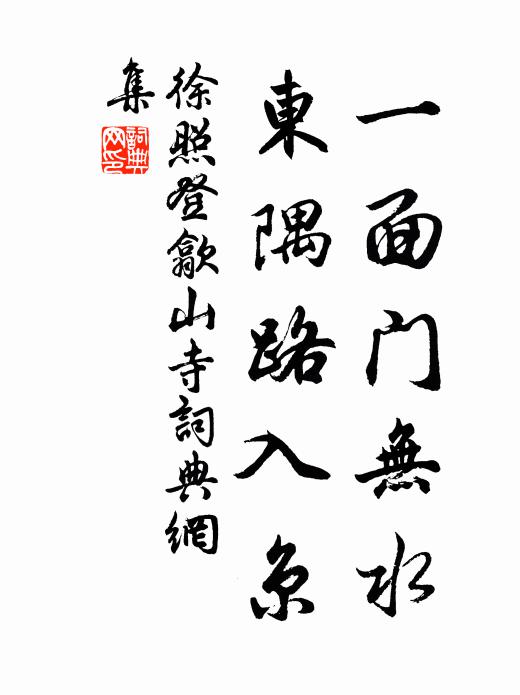 一面門無水
東隅路入京
徐照登歙山寺詞典網
集
詞典
网印